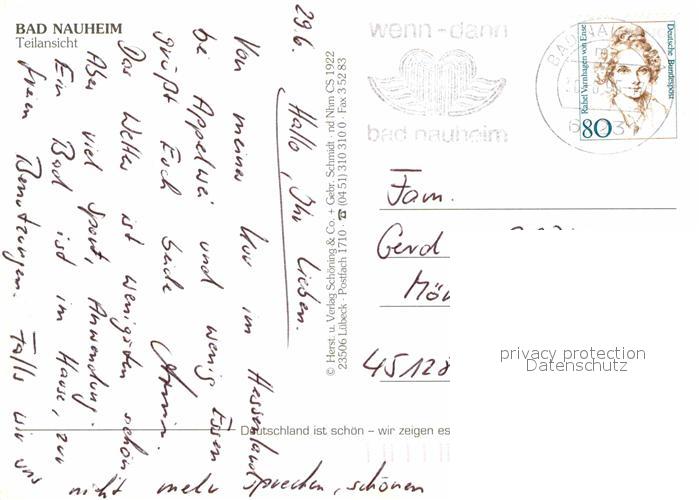 BAD NAUHEIM
Teilansicht
29.6.
Hallo, Ihr Lieben.
Von meiner Kur im Hessenland
bei Appelwei und wenig Essen
grüßt Euch beide Armin.
Das Wetter ist wenigsten schön
Aber viel Sport, Anwendung.
Ein Bad ist im Hause, zur
freien Benutzungen. Falls wir uns
nicht mehr sprechen, schönen
© Herst. u. Verlag Schöning & Co. + Gebr. Schmidt · nd Nhm CS 1922
23506 Lübeck · Postfach 1710 · ☎ (04 51) 310 310 0 · Fax 3 52 83
Deutschland ist schön – wir zeigen es
wenn-dann
bad nauheim
BAD NAU
Deutsche Bundespost
Rahel Varnhagen von Ense
80
Fam.
Gerd
45128
privacy protection
Datenschutz